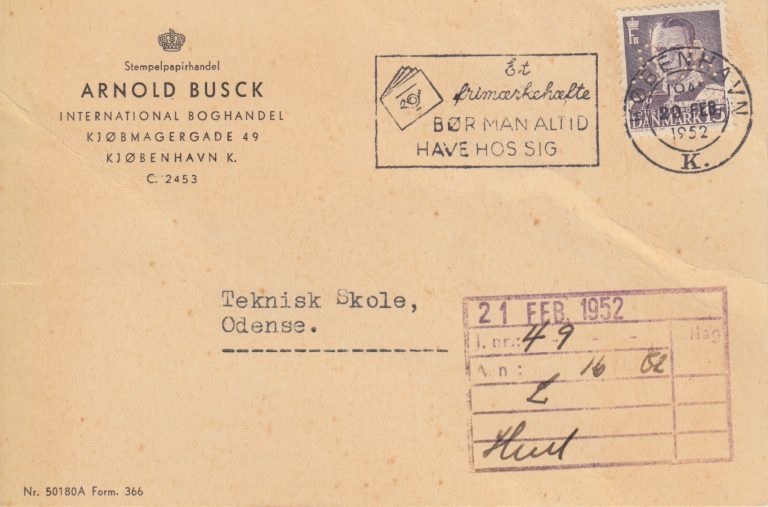 Stempelpapirhandel
ARNOLD BUSCK
INTERNATIONAL BOGHANDEL
KJØBMAGERGADE 49
KJØBENHAVN K.
C. 2453
Et
frimærkehæfte
BØR MAN ALTID
HAVE HOS SIG
KØBENHAVN
20 FEB.
1952
K.
DANMARK
Teknisk Skole,
Odense.
21 FEB. 1952
I. nr.: 49
A. n:
16
Nr. 50180A Form. 366